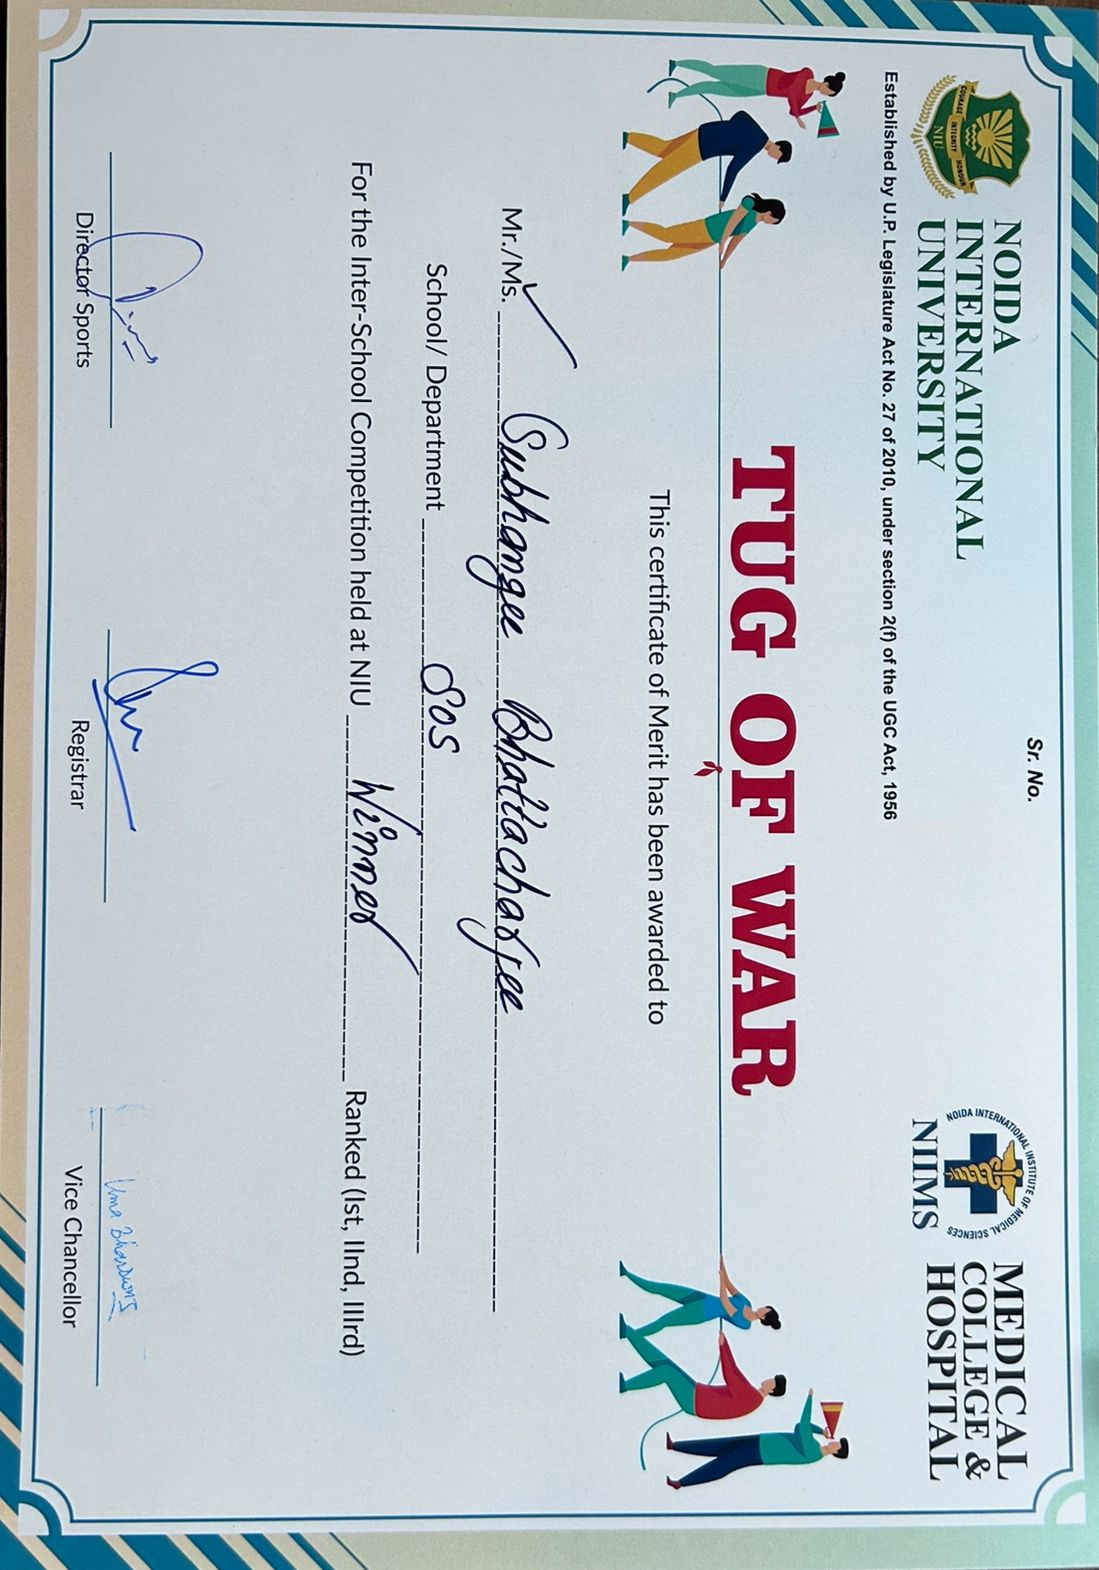 Sr. No.
NOIDA
INTERNATIONAL
UNIVERSITY
COURAGE INTEGRITY HONOUR
NIU
Established by U.P. Legislature Act No. 27 of 2010, under section 2(f) of the UGC Act, 1956
NOIDA INTERNATIONAL INSTITUTE OF MEDICAL SCIENCES
NIIMS
MEDICAL
COLLEGE &
HOSPITAL
TUG OF WAR
This certificate of Merit has been awarded to
Mr./Ms. Subhangee Bhattacharjee
School/ Department SOS
For the Inter-School Competition held at NIU Winner Ranked (Ist, IInd, IIIrd)
Uma Bhardwaj
Director Sports
Registrar
Vice Chancellor